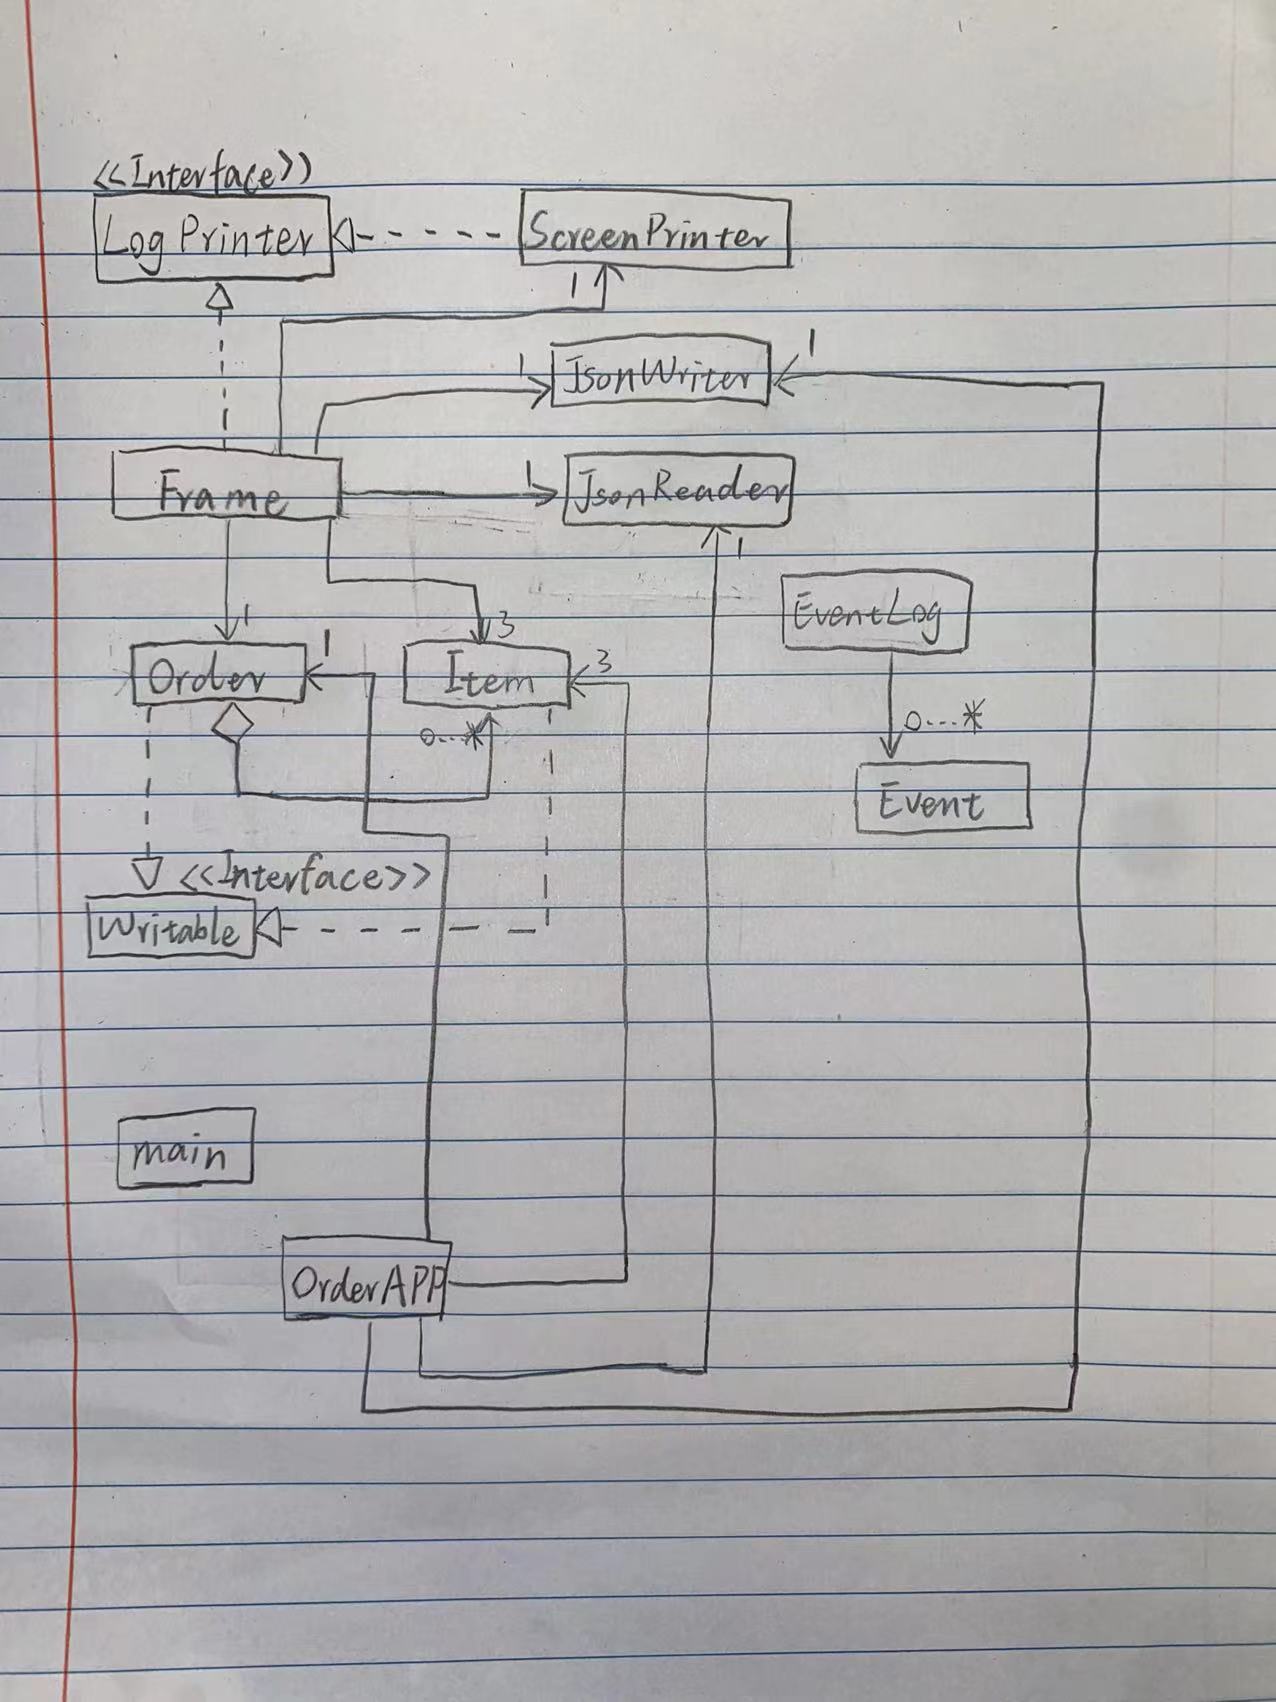 <<Interface>>
LogPrinter
ScreenPrinter
1
1
JsonWriter
1
Frame
1
JsonReader
1
EventLog
1
3
Order
1
Item
3
0...*
0...*
Event
<<Interface>>
Writable
main
OrderAPP